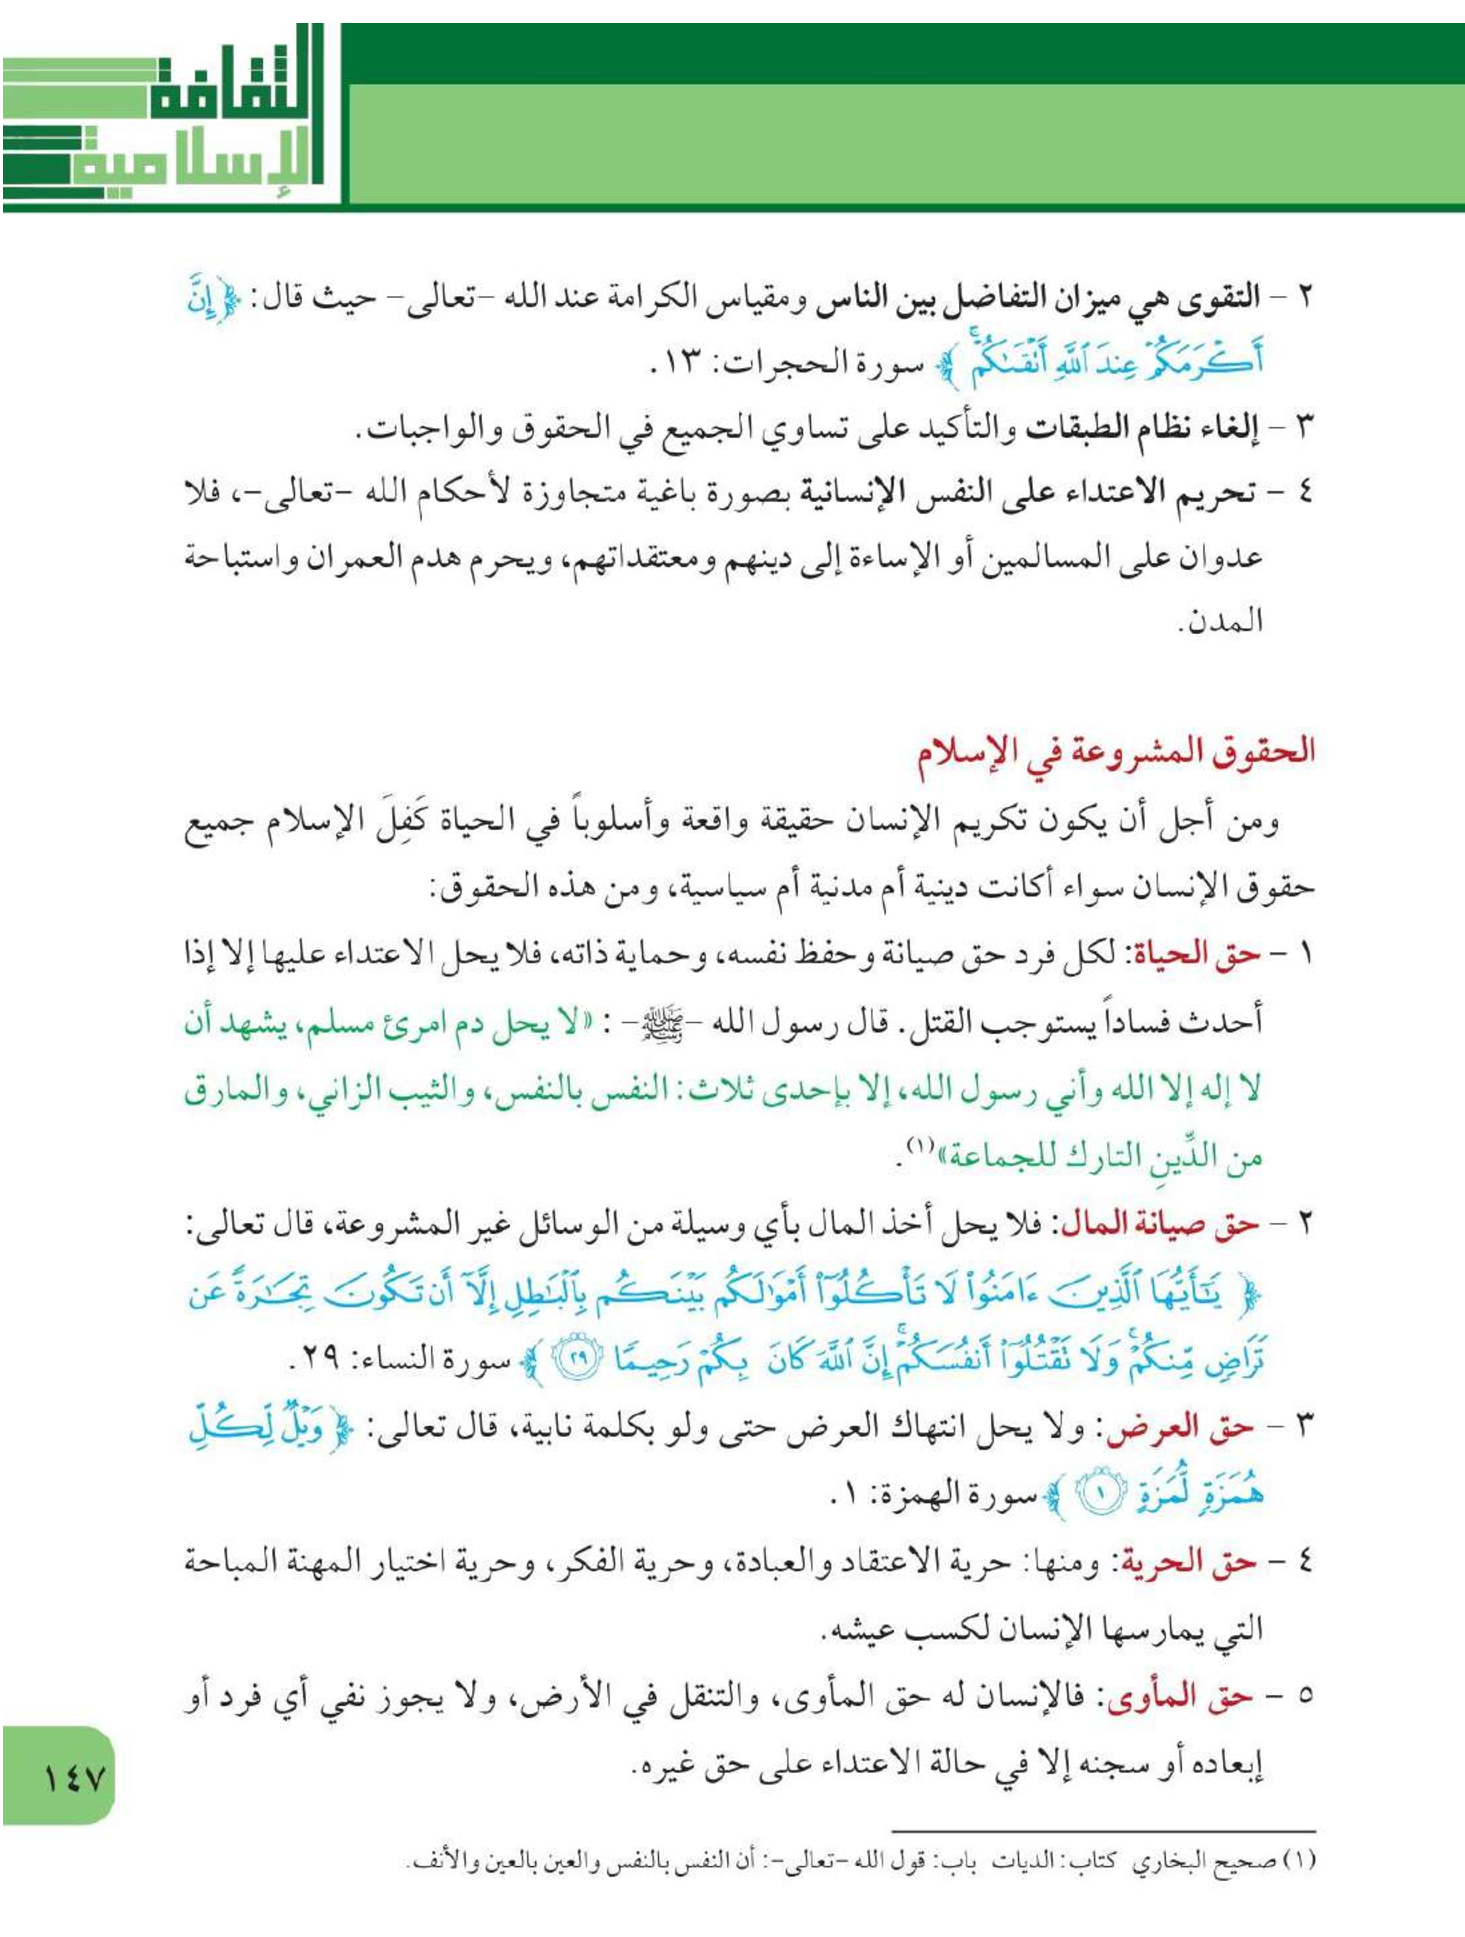 الثقافة
الإسلامية
٢ - التقوى هي ميزان التفاضل بين الناس ومقياس الكرامة عند الله -تعالى- حيث قال: ﴿إِنَّ
أَكْرَمَكُمْ عِندَ ٱللَّهِ أَتْقَىٰكُمْ﴾ سورة الحجرات: ١٣.
٣ - إلغاء نظام الطبقات والتأكيد على تساوي الجميع في الحقوق والواجبات.
٤ - تحريم الاعتداء على النفس الإنسانية بصورة باغية متجاوزة لأحكام الله -تعالى-، فلا
عدوان على المسالمين أو الإساءة إلى دينهم ومعتقداتهم، ويحرم هدم العمران واستباحة
المدن.
الحقوق المشروعة في الإسلام
ومن أجل أن يكون تكريم الإنسان حقيقة واقعة وأسلوباً في الحياة كَفِلَ الإسلام جميع
حقوق الإنسان سواء أكانت دينية أم مدنية أم سياسية، ومن هذه الحقوق:
١ - حق الحياة: لكل فرد حق صيانة وحفظ نفسه، وحماية ذاته، فلا يحل الاعتداء عليها إلا إذا
أحدث فساداً يستوجب القتل. قال رسول الله -ﷺ- : «لا يحل دم امرئ مسلم، يشهد أن
لا إله إلا الله وأني رسول الله، إلا بإحدى ثلاث: النفس بالنفس، والثيب الزاني، والمارق
من الدِّينِ التارك للجماعة»(١).
٢ - حق صيانة المال: فلا يحل أخذ المال بأي وسيلة من الوسائل غير المشروعة، قال تعالى:
﴿يَٰٓأَيُّهَا ٱلَّذِينَ ءَامَنُوا۟ لَا تَأْكُلُوٓا۟ أَمْوَٰلَكُم بَيْنَكُم بِٱلْبَٰطِلِ إِلَّآ أَن تَكُونَ تِجَٰرَةً عَن
تَرَاضٍ مِّنكُمْ ۚ وَلَا تَقْتُلُوٓا۟ أَنفُسَكُمْ ۚ إِنَّ ٱللَّهَ كَانَ بِكُمْ رَحِيمًا ٢٩﴾ سورة النساء: ٢٩.
٣ - حق العرض: ولا يحل انتهاك العرض حتى ولو بكلمة نابية، قال تعالى: ﴿وَيْلٌ لِّكُلِّ
هُمَزَةٍ لُّمَزَةٍ ١﴾ سورة الهمزة: ١.
٤ - حق الحرية: ومنها: حرية الاعتقاد والعبادة، وحرية الفكر، وحرية اختيار المهنة المباحة
التي يمارسها الإنسان لكسب عيشه.
٥ - حق المأوى: فالإنسان له حق المأوى، والتنقل في الأرض، ولا يجوز نفي أي فرد أو
إبعاده أو سجنه إلا في حالة الاعتداء على حق غيره.
١٤٧
(١) صحيح البخاري كتاب: الديات باب: قول الله -تعالى-: أن النفس بالنفس والعين بالعين والأنف.